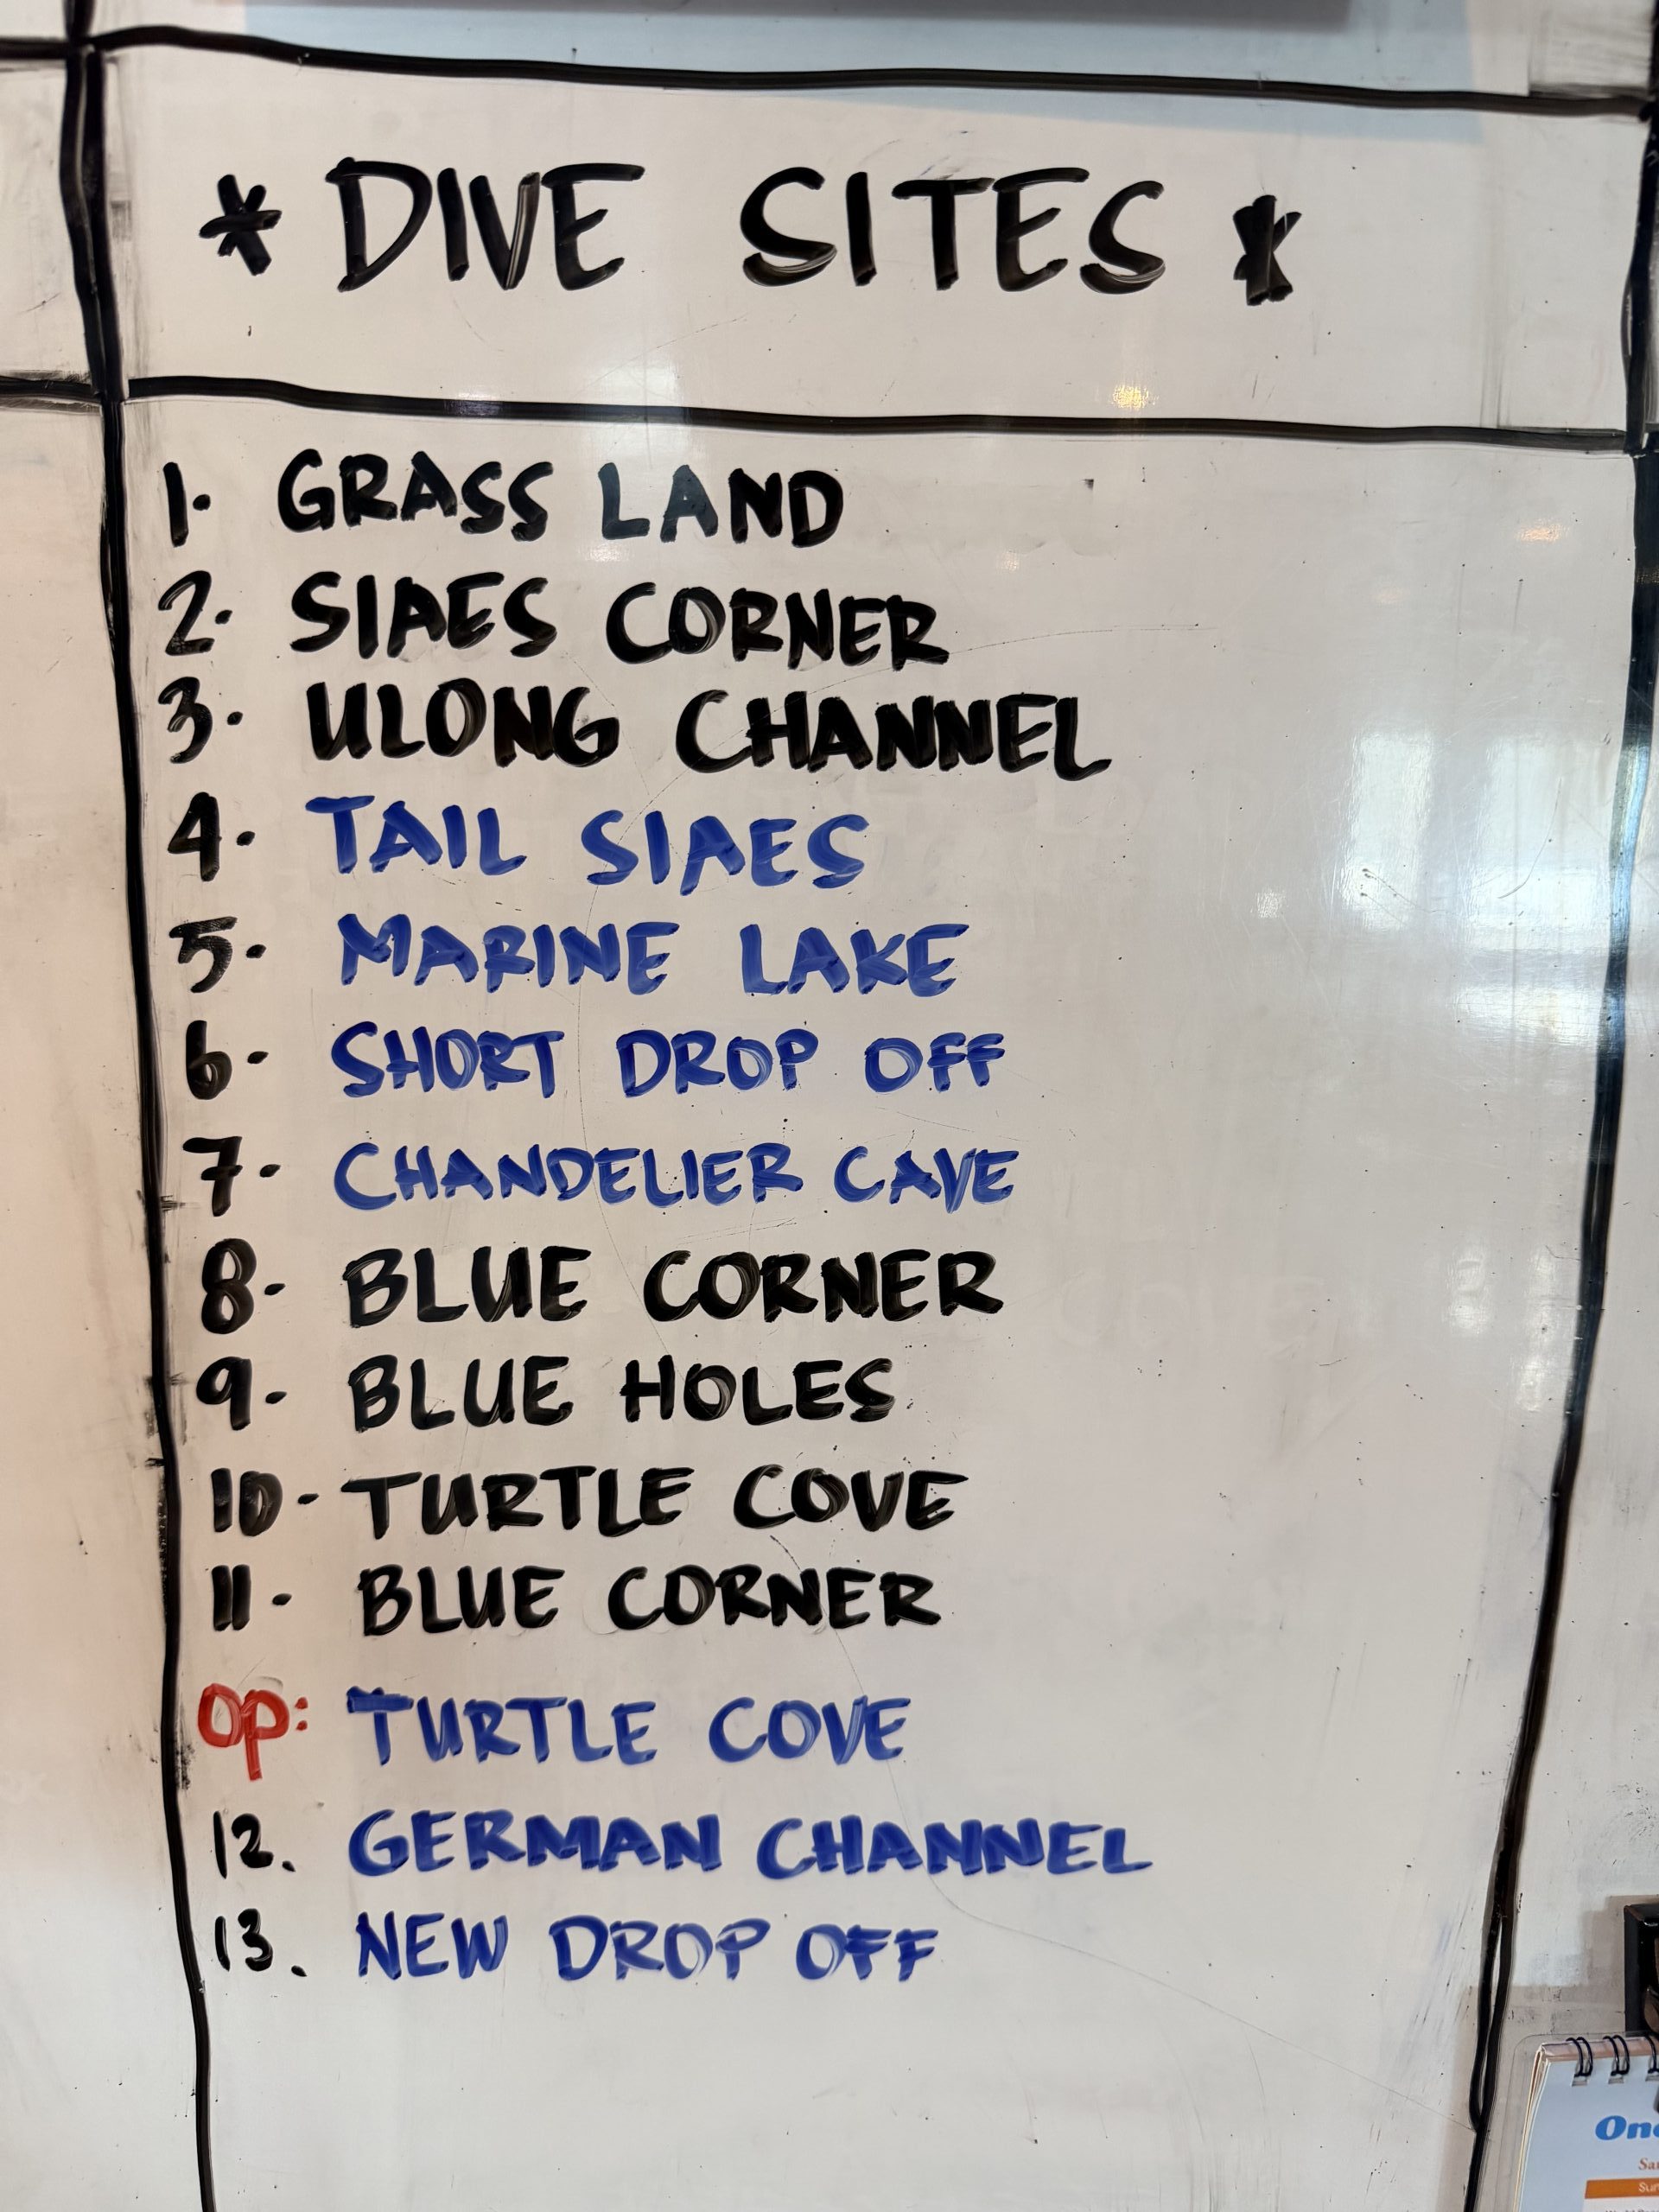 * DIVE SITES *
1. GRASS LAND
2. SIAES CORNER
3. ULONG CHANNEL
4. TAIL SIAES
5. MARINE LAKE
6. SHORT DROP OFF
7. CHANDELIER CAVE
8. BLUE CORNER
9. BLUE HOLES
10. TURTLE COVE
11. BLUE CORNER
OP: TURTLE COVE
12. GERMAN CHANNEL
13. NEW DROP OFF